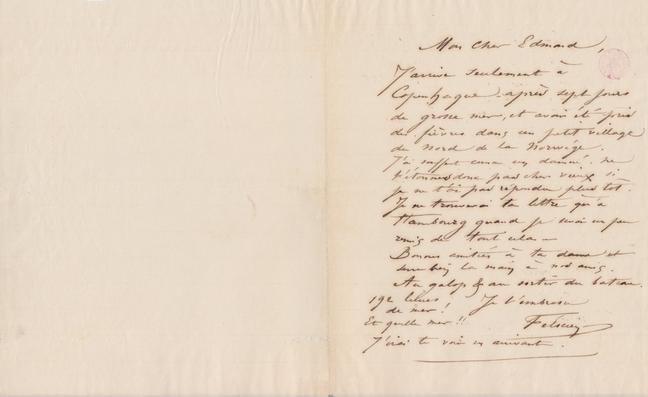 Mon cher Edmond,
J'arrive seulement à
Copenhague après sept jours
de grosse mer, et avoir été pris
de fièvres dans un petit village
du Nord de la Norwége.
J'ai souffert comme un damné. ne
t'étonnes donc pas cher vieux si
je ne t'ai pas répondu plus tôt.
Je ne trouverai ta lettre qu'à
Hambourg quand je serai un peu
remis de tout cela –
Bonnes amitiés à ta dame et
serre bien la main à nos amis.
Au galop & au sortir du bateau.
192 lieues! Je t'embrasse
de mer!
Et quelle mer!! Félicien
J'irai te voir en arrivant.